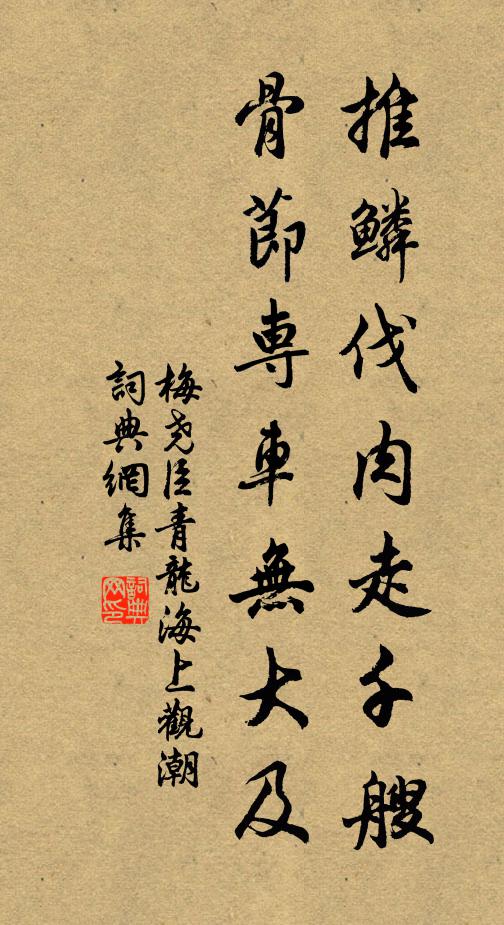 推鱗伐肉走千艘
骨節専車無大及
梅尭臣青龍海上觀潮
詞典網集
詞典网印